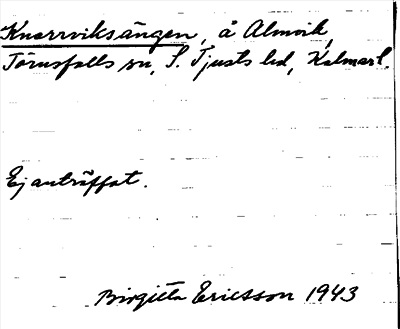 Knarrviksängen, å Almvik,
Törnsfalls sn, S. Tjusts hd, Kalmar l.
Ej anträffat.
Birgitta Ericsson 1943